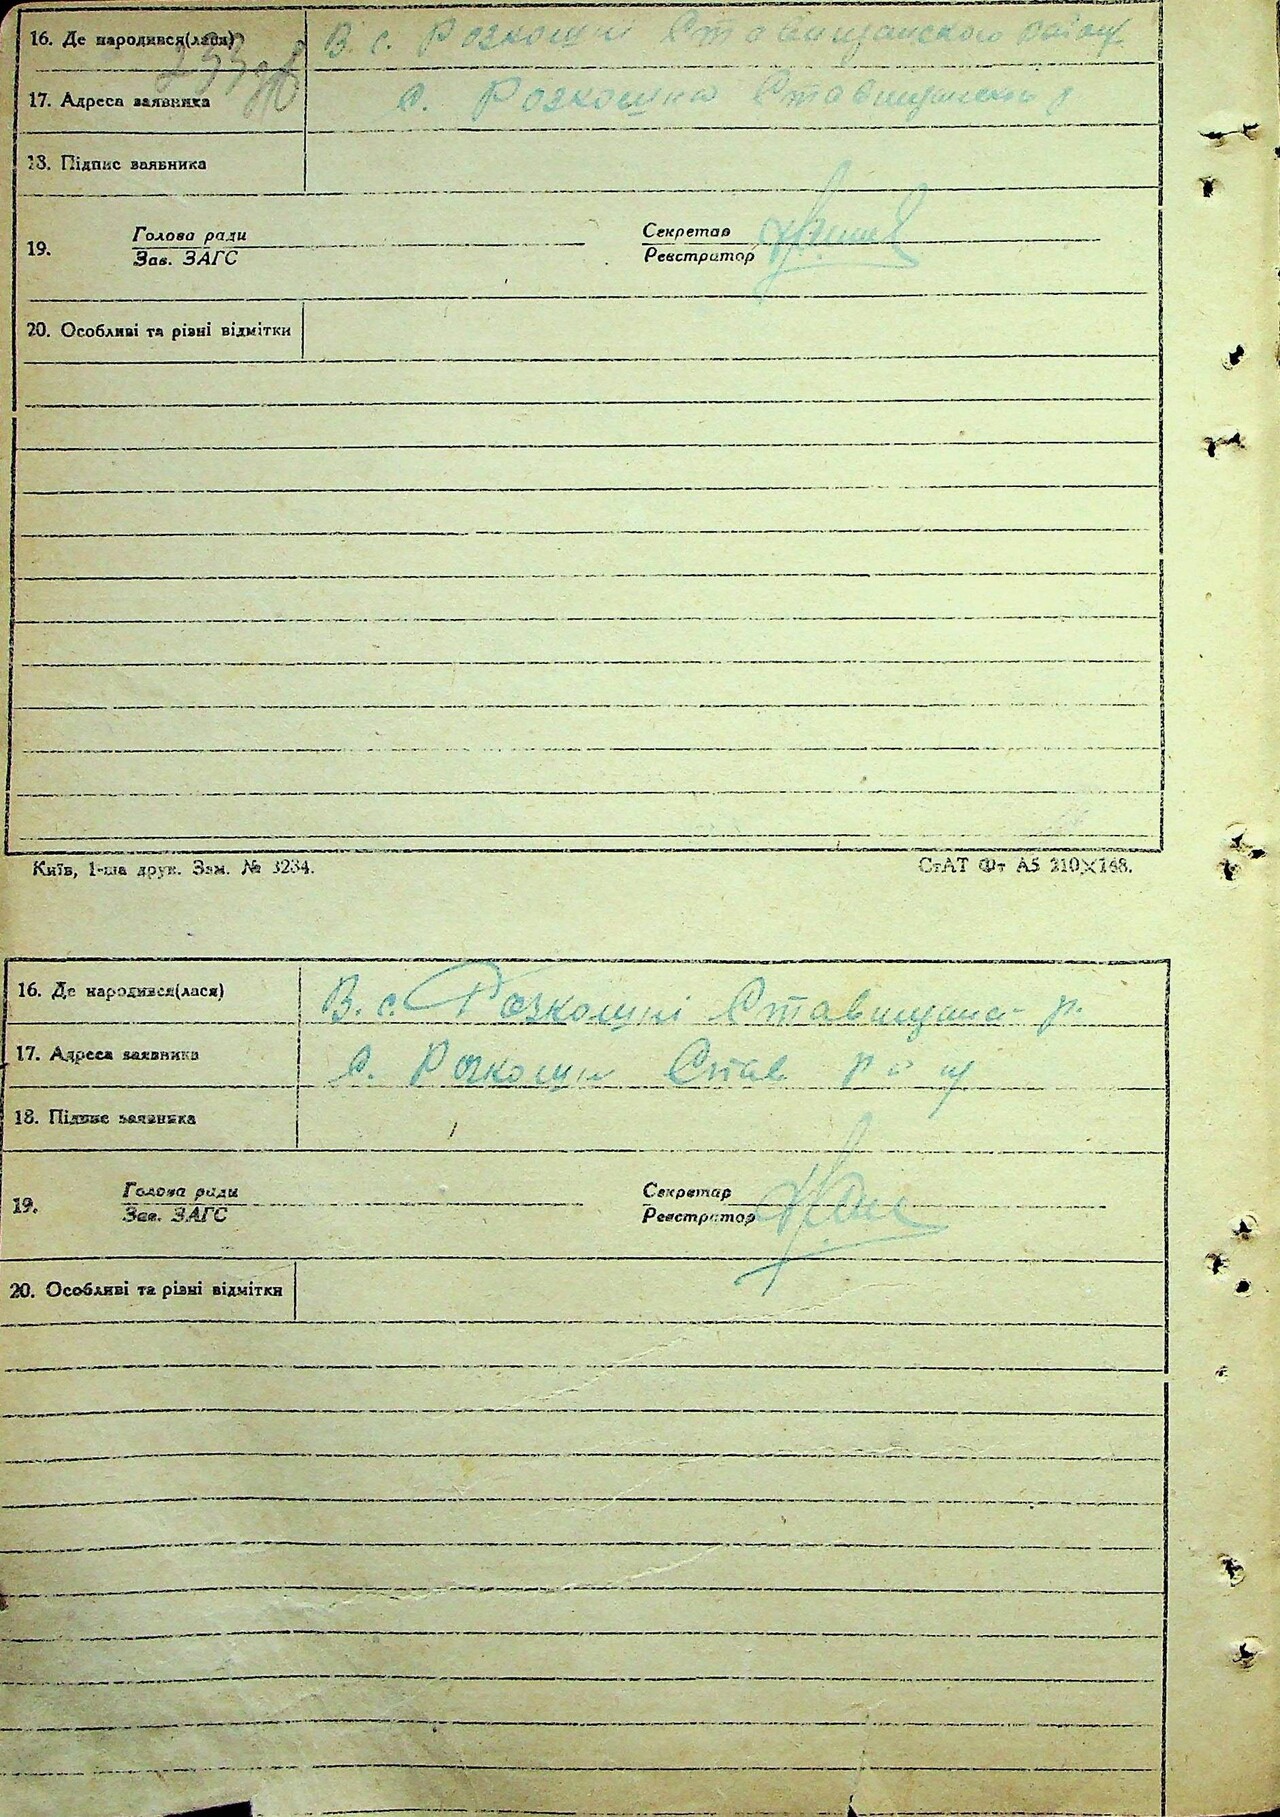 16. Де народився(лася) В. с. Розкошні Ставищанского району
17. Адреса заявника с. Розкошна
18. Підпис заявника
Голова ради Секретар
19.
Зав. ЗАГС Реєстратор
20. Особливі та різні відмітки
Київ, 1-ша друк. Зам. № 3234. СтАТ Фт А5 210×148.
16. Де народився(лася) В. с. Розкошні р.
17. Адреса заявника с. Став
18. Підпис заявника
Голова ради Секретар
19.
Зав. ЗАГС Реєстратор
20. Особливі та різні відмітки